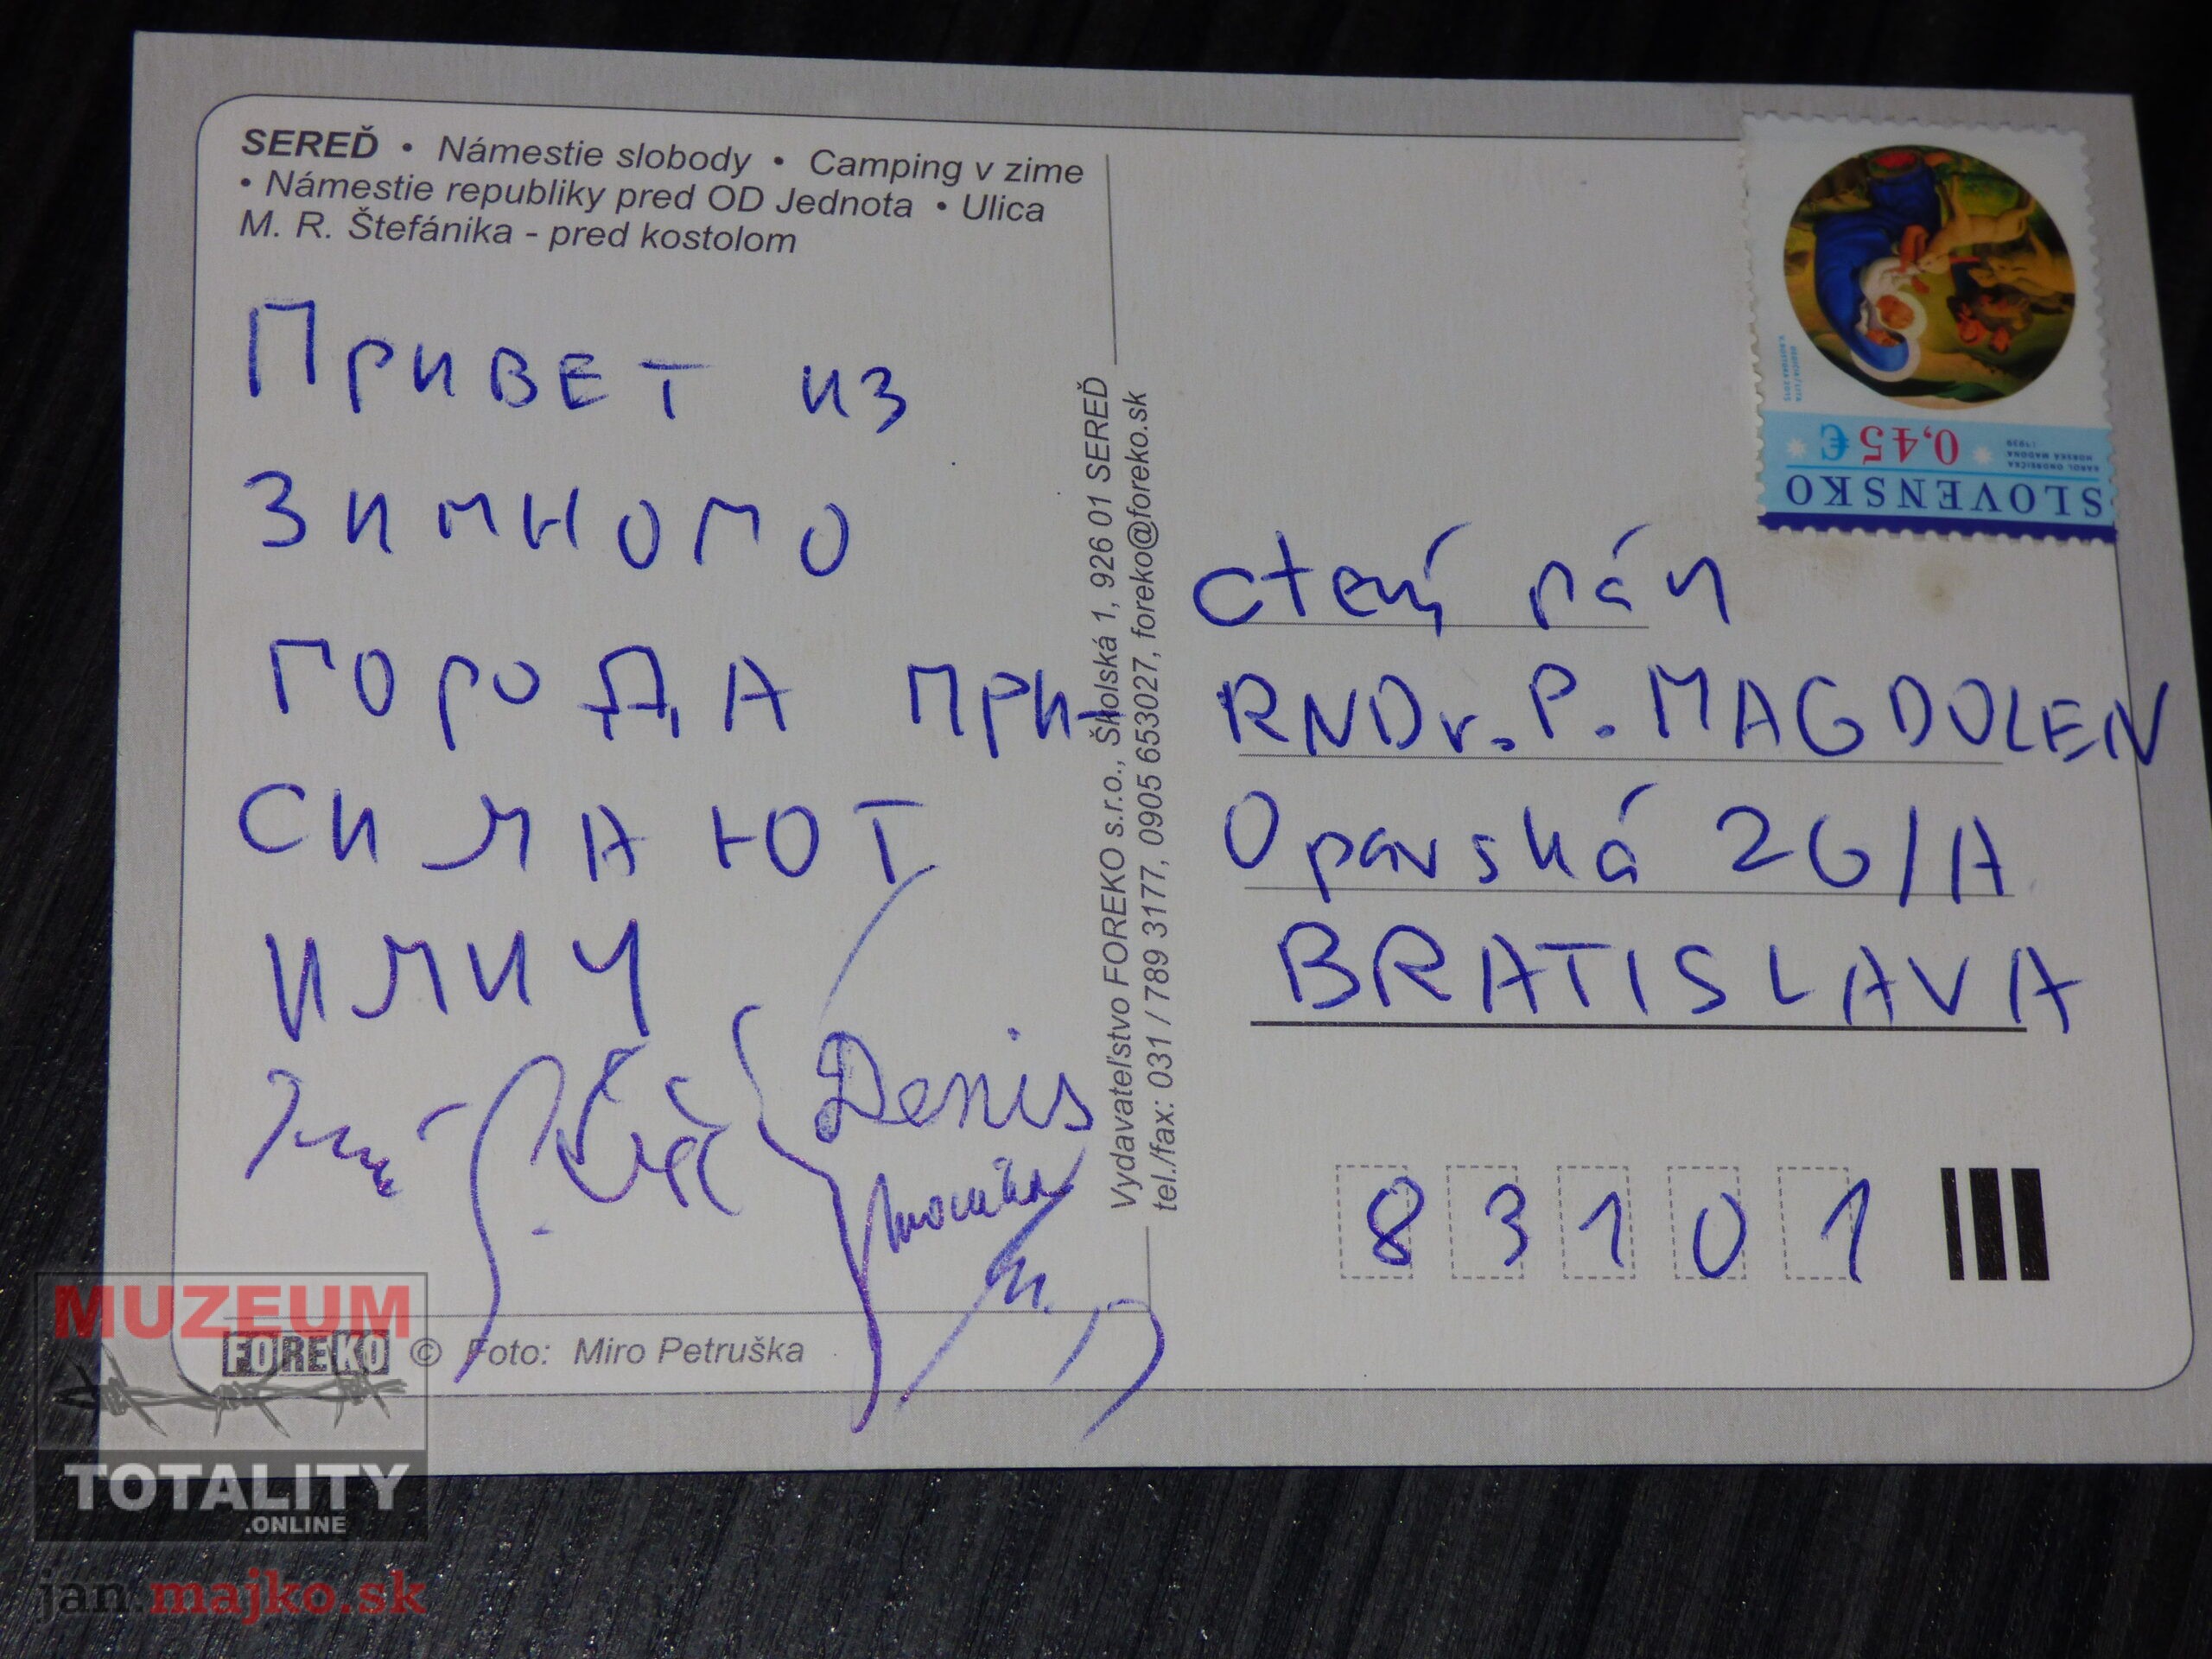 SEREĎ • Námestie slobody • Camping v zime
• Námestie republiky pred OD Jednota • Ulica
M. R. Štefánika - pred kostolom
Привет из
зимномо
города при
симают
имич
Denis
Vydavateľstvo FOREKO s.r.o., Školská 1, 926 01 SEREĎ
tel./fax: 031 / 789 3177, 0905 653027, foreko@foreko.sk
SLOVENSKO
0,45 €
KAROL ONDREIČKA
HORSKÁ MADONA
ctený pán
RNDr. P. MAGDOLEN
Opavská 26/A
BRATISLAVA
83101
FOREKO © Foto: Miro Petruška
MUZEUM
TOTALITY
.ONLINE
jan.majko.sk